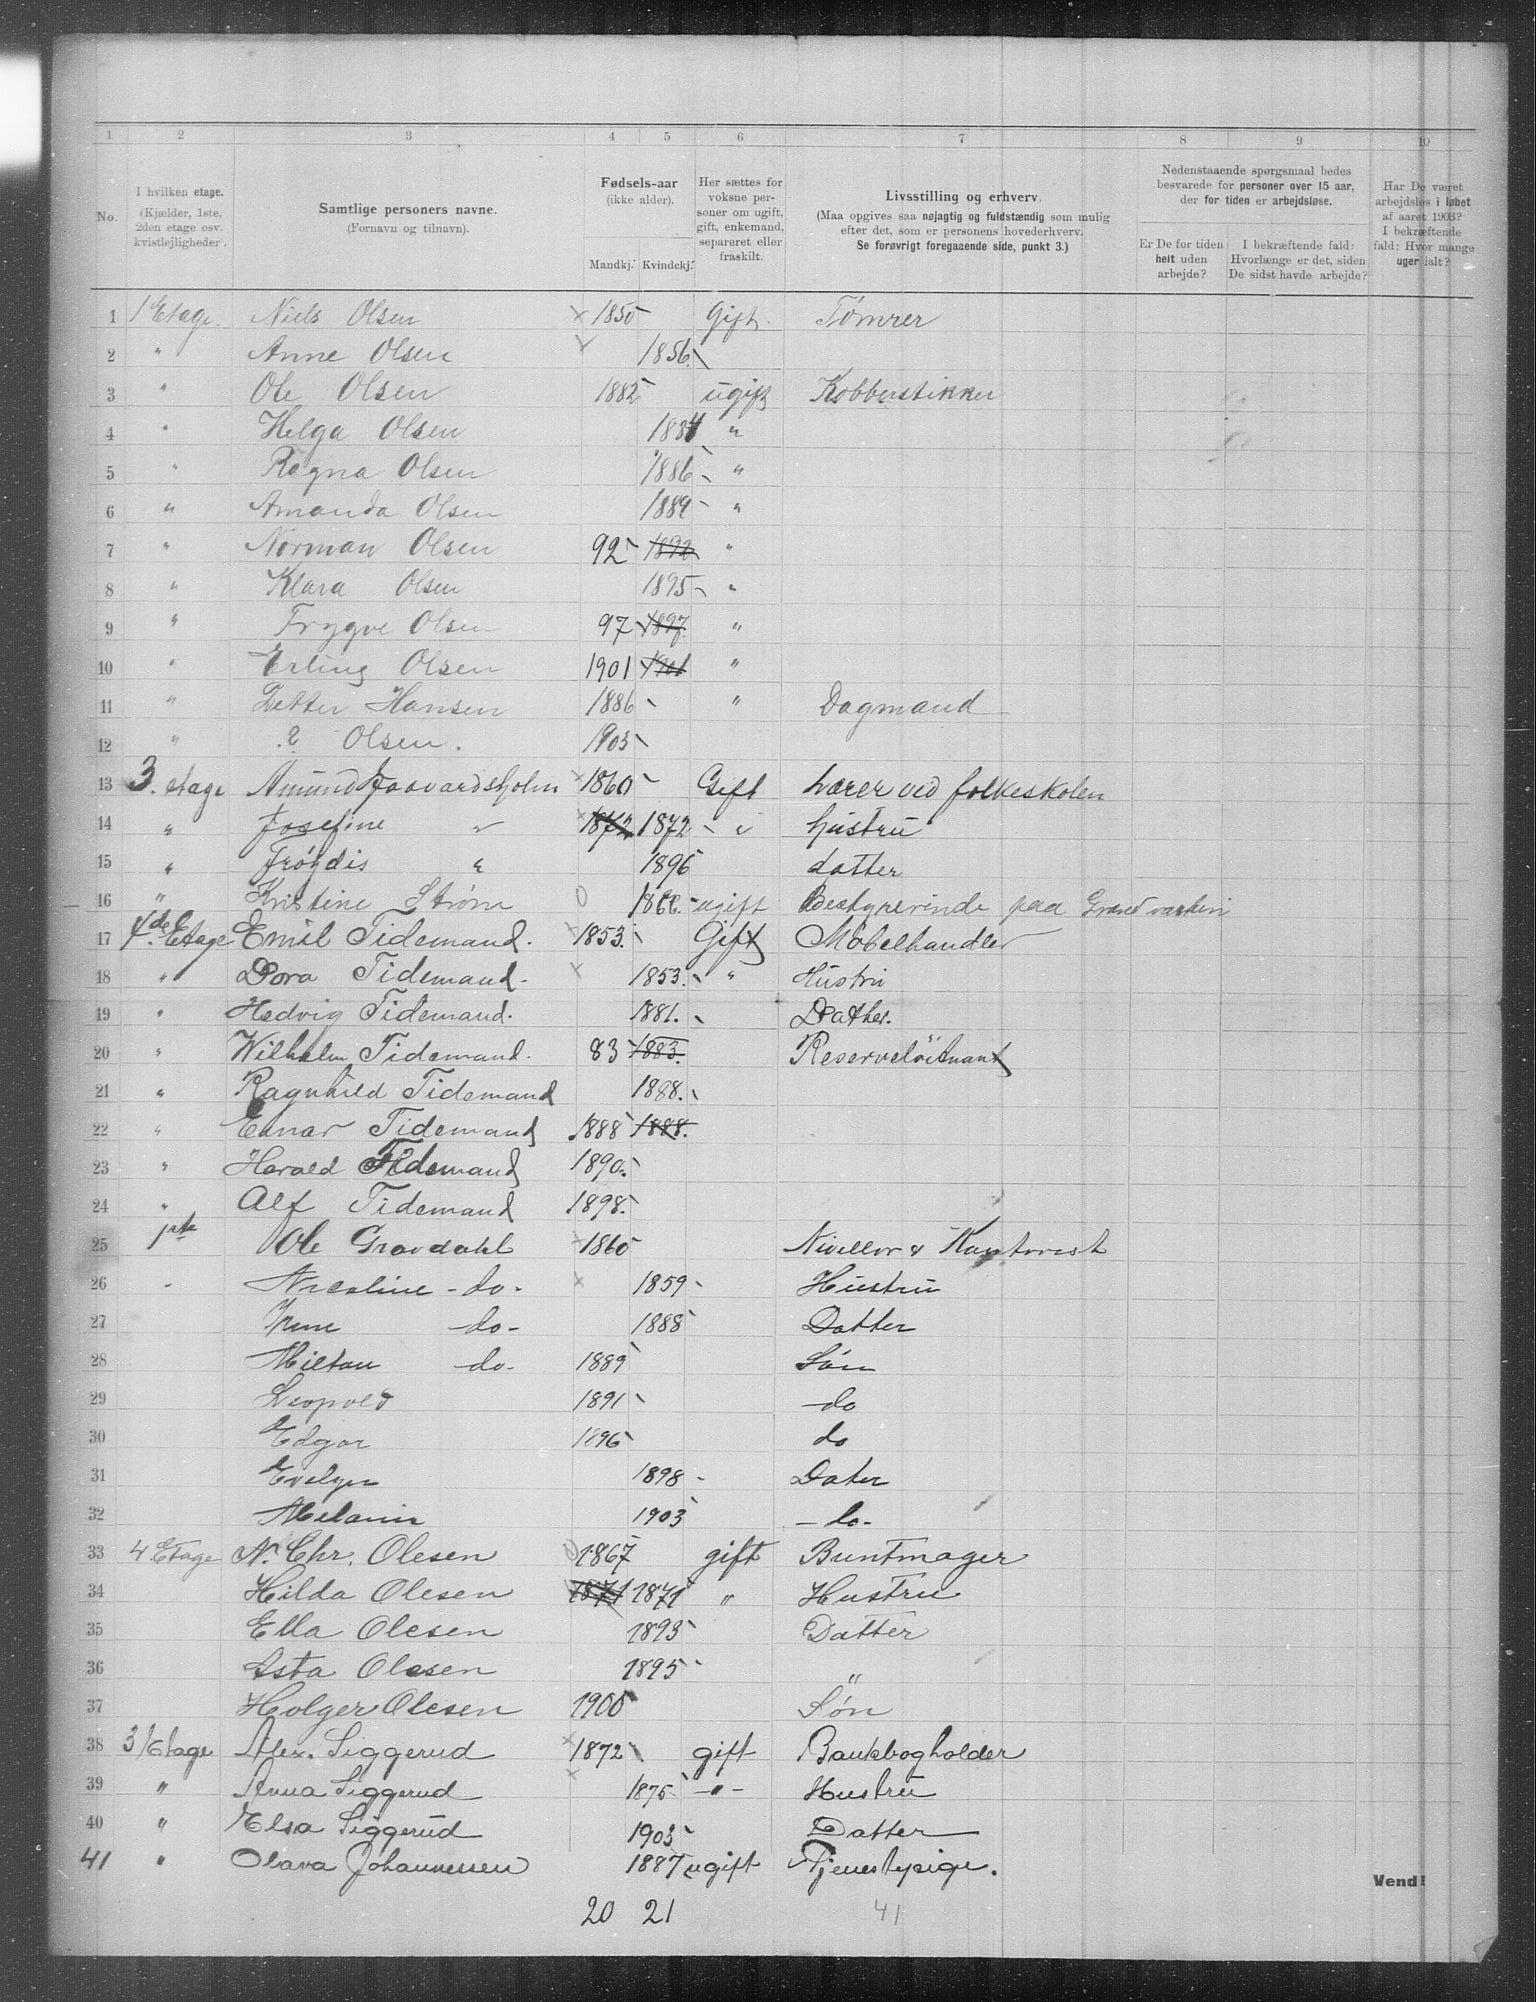 1 2 3 4 5 6 7 8 9 10
No.
I hvilken etage. (Kjælder, 1ste, 2den etage osv. kvistleiligheder).
Samtlige personers navne. (Fornavn og tilnavn).
Fødsels-aar (ikke alder). Mandkj. Kvindekj.
Her sættes for voksne personer om ugift, gift, enkemand, separeret eller fraskilt.
Livsstilling og erhverv. (Maa opgives saa nøjagtig og fuldstændig som mulig efter det, som er personens hovederhverv. Se forøvrigt foregaaende side, punkt 3.)
Nedenstaaende spørgsmaal bedes besvarede for personer over 15 aar, der for tiden er arbejdsløse.
Er De for tiden helt uden arbejde?
I bekræftende fald: Hvorlænge er det, siden De sidst havde arbejde?
Har De været arbejdsløs i løbet af aaret 1903? I bekræftende fald: Hvor mange uger ialt?
1 1 Etage. Niels Olsen x 1850 Gift. Tømrer
2 " Anne Olsen 1856
3 " Ole Olsen 1882 ugift Kobberstikker
4 " Helga Olsen 1884 "
5 " Ragna Olsen 1886 "
6 " Amanda Olsen 1889 "
7 " Norman Olsen 92 1892 "
8 " Klara Olsen 1895 "
9 " Trygve Olsen 97 1897 "
10 " Erling Olsen 1901 1901 "
11 " Petter Hansen 1886 " Dagmand
12 " ? Olsen. 1903
13 3. etage Amund 1860 Gift Lærer ved folkeskolen
14 " Josefine " 1872 1872 " hustru
15 " Frøydis " 1896 datter
16 " Kristine Strøm 0 ugift Bestyrerinde paa
17 4de Etage Emil Tidemand. 1853. Gift Møbelhandler
18 " Dora Tidemand. x 1853. " Hustru
19 " Hedvig Tidemand. 1881. Datter.
20 " Wilhelm Tidemand. 83 1883. Reserveløitnant
21 " Ragnhild Tidemand 1888.
22 " Einar Tidemand 1888 1888.
23 " Harald Tidemand 1890.
24 " Alf Tidemand 1898.
25 1ste Ole Gravdahl x 1860 Nivellør & Kontorist
26 " Nicoline - do - x 1859 Hustru
27 Irene - do - 1888 Datter
28 Milton - do - 1889 Søn
29 Leopold 1891 - do
30 Edgar 1896 do
31 Evelyn 1898 Dater
32 Melanie 1903 - do -
33 4 Etage N. Chr. Olesen 0 1867 gift Buntmager
34 Hilda Olesen 1871 1871 " Hustru
35 Ella Olesen 1893 Datter
36 Asta Olesen 1895 "
37 Holger Olesen 1900 Søn
38 3 Etage Alex. Siggerud x 1872 gift Bankbogholder
39 " Anna Siggerud x 1875 - " - Hustru
40 " Elsa Siggerud 1903 Datter
41 " Olava Johannessen 1887 ugift Tjenestepige.
Vend!
20 21 41